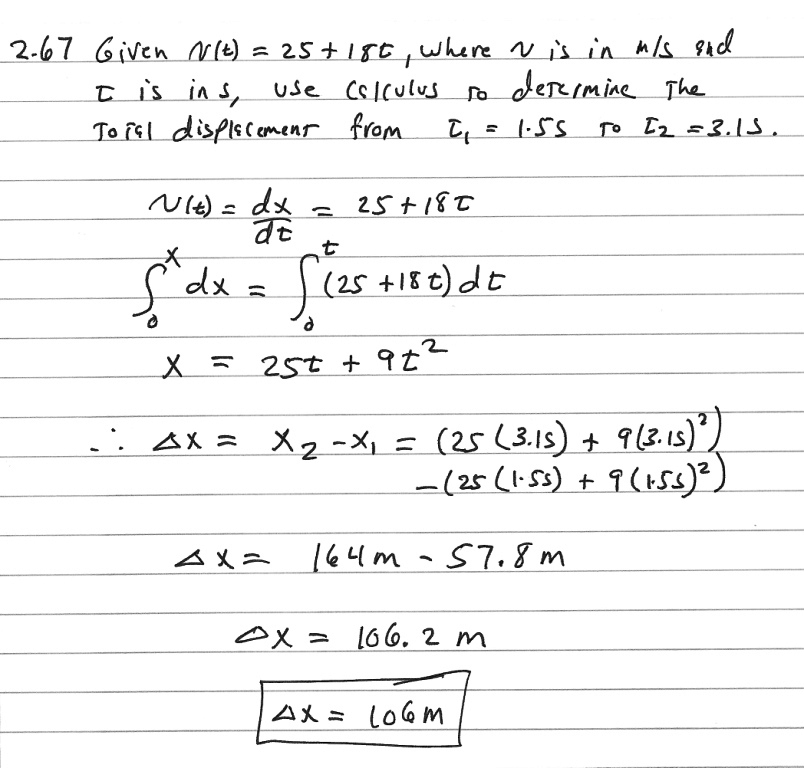 2.67 Given v(t) = 25 + 18t, where v is in m/s and
t is in s, use calculus to determine the
total displacement from t₁ = 1.5s to t₂ = 3.1s.
v(t) = dx/dt = 25 + 18t
∫₀ˣ dx = ∫₀ᵗ (25 + 18t) dt
x = 25t + 9t²
∴ Δx = x₂ - x₁ = (25 (3.1s) + 9(3.1s)²)
-(25 (1.5s) + 9(1.5s)²)
Δx = 164m - 57.8m
Δx = 106.2 m
Δx = 106m